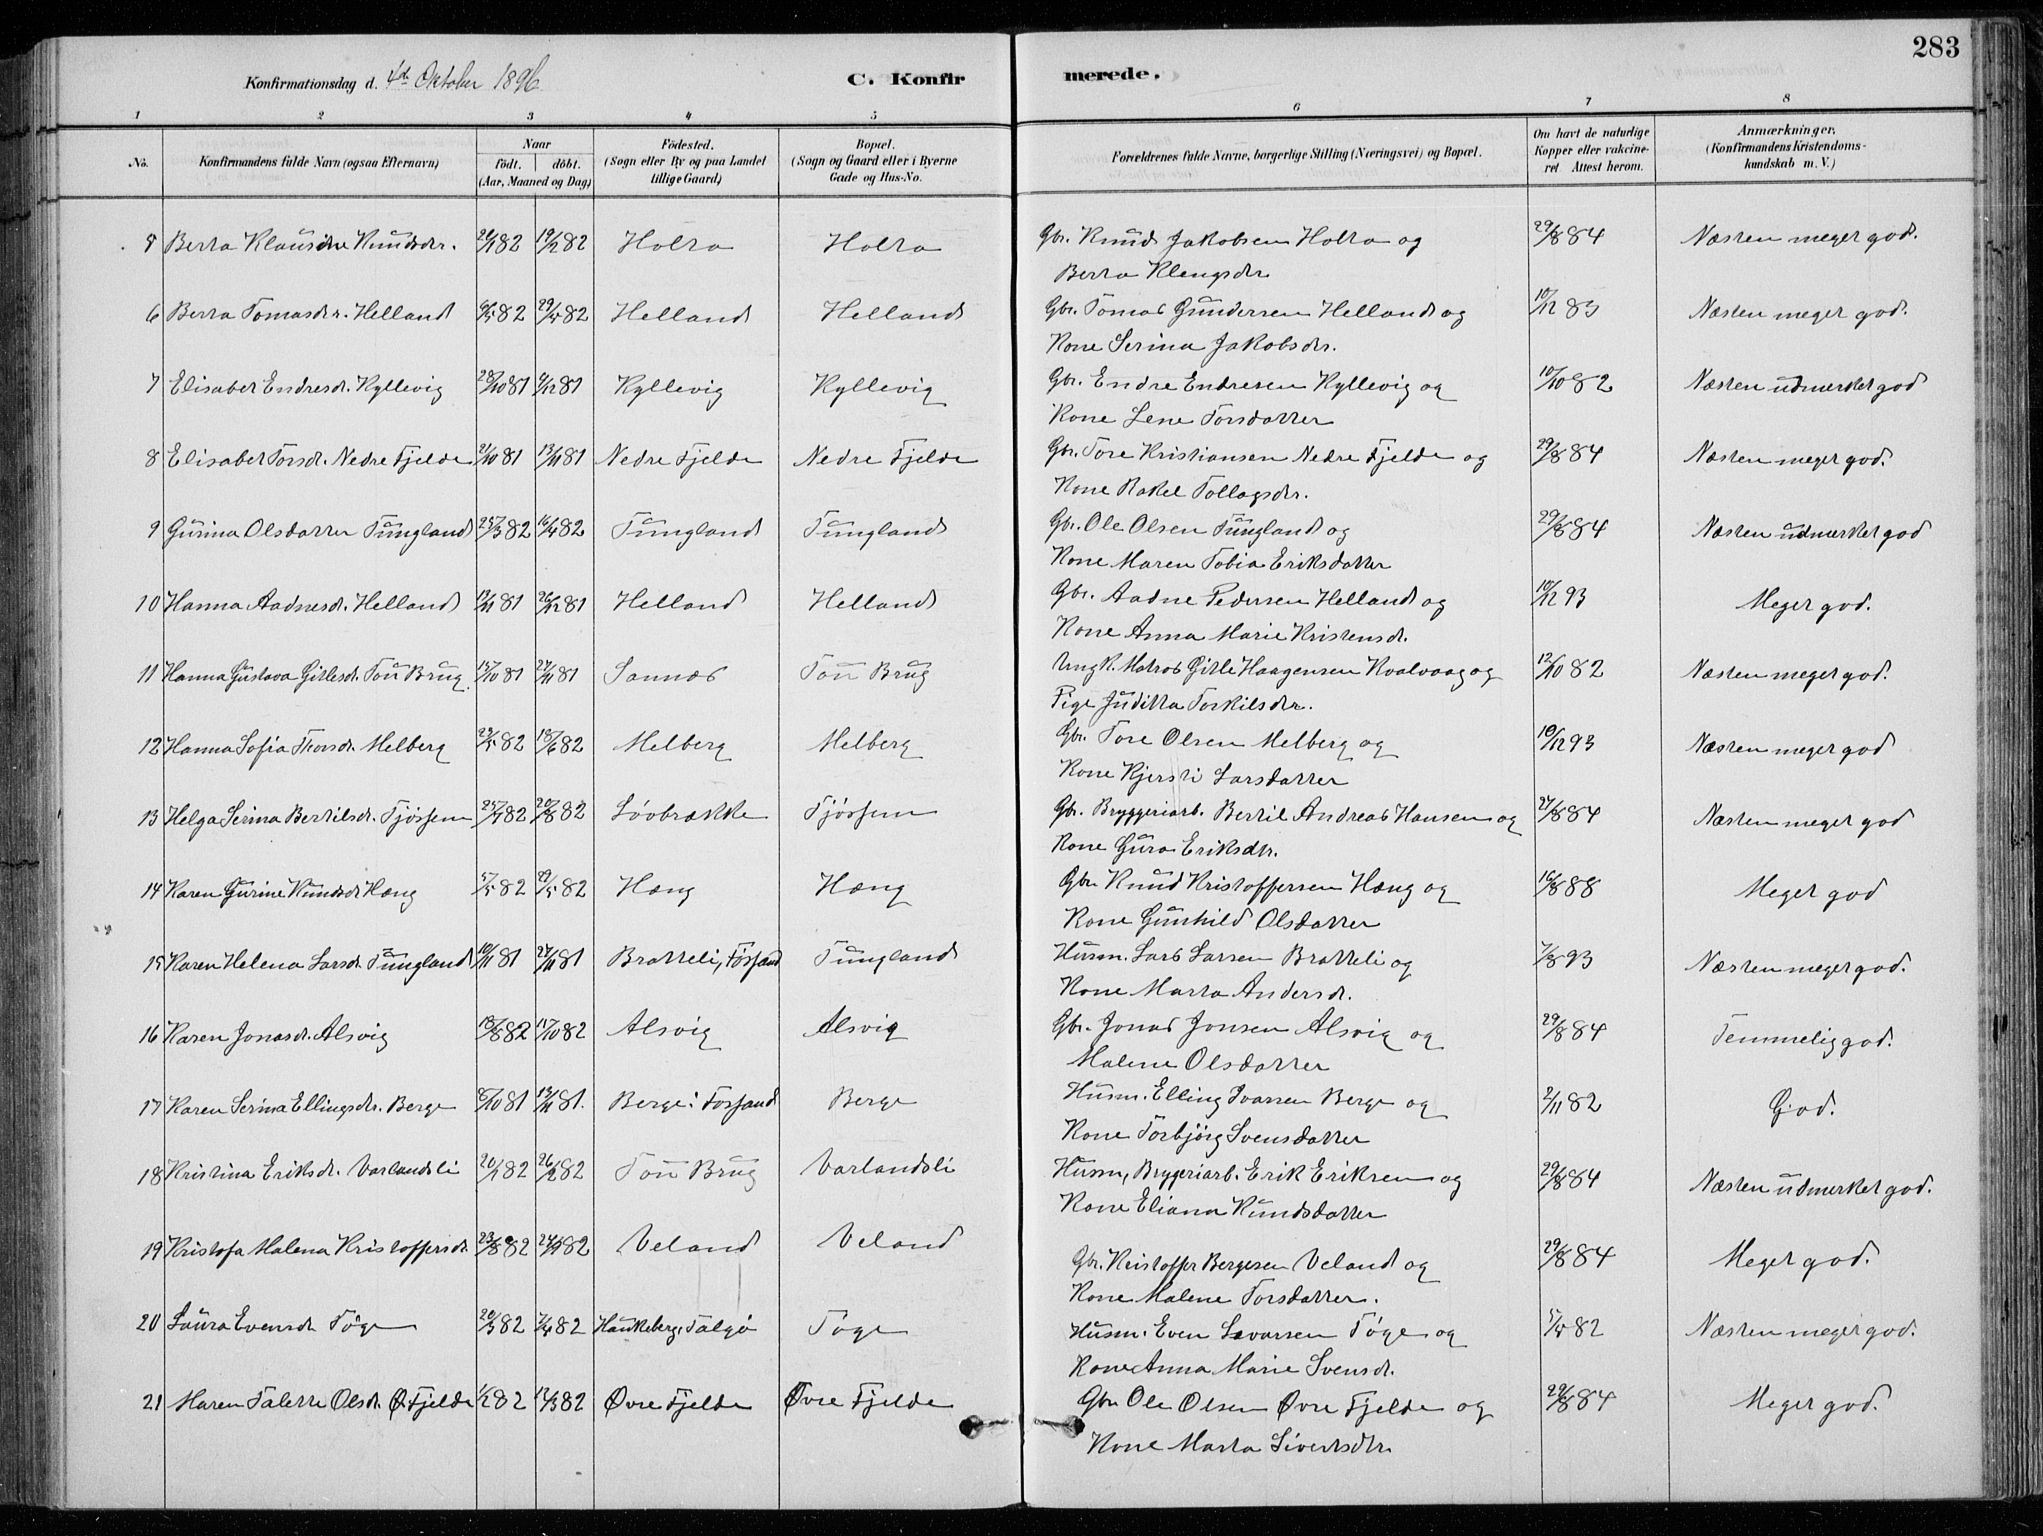 283
Konfirmationsdag d. 4de Oktober 1896
C. Konfir merede.
1 2 3 4 5 6 7 8
No. Konfirmandens fulde Navn (ogsaa Efternavn) Naar födt. döbt. (Aar, Maaned og Dag) Födested. (Sogn eller By og paa Landet tillige Gaard) Bopæl. (Sogn og Gaard eller i Byerne Gade og Hus-No. Forældrenes fulde Navne, borgerlige Stilling (Næringsvei) og Bopæl. Om havt de naturlige Kopper eller vakcineret Attest herom. Anmærkninger. (Konfirmandens Kristendomskundskab m. V.)
5 Berta Klausine Knudsdtr. 20/1 82 19/2 82 Holta Holta Gbr. Knud Jakobsen Holta og 29/8 84 Næsten meget god.
Berta Klengsdtr
6 Berta Tomasdtr. Helland 6/5 82 29/5 82 Helland Helland Gbr. Tomas Gundersen Helland og 10/12 83 Næsten meget god.
Kone Serina Jakobsdtr.
7 Elisabet Endresdr. Kyllevig 28/10 81 4/12 81 Kyllevig Kyllevig Gbr. Endre Endresen Kyllevig og 10/10 82 Næsten udmerket god
Kone Lene Torsdatter
8 Elisabet Torsdr. Nedre Fjelde 21/10 81 13/11 81 Nedre Fjelde Nedre Fjelde Gbr. Tore Kristiansen Nedre Fjelde og 29/8 84 Næsten meget god.
Kone Rakel Tollagsdtr.
9 Gurina Olsdatter Tungland 25/3 82 16/4 82 Tungland Tungland Gbr. Ole Olsen Tungland og 29/8 84 Næsten udmerket god
Kone Maren Tobia Eriksdatter
10 Hanna Aadnesdr. Helland 19/11 81 26/12 81 Helland Helland Gbr. Aadne Pedersen Helland og 10/12 93 Meget god.
Kone Anna Marie Kristensdr.
11 Hanna Gustava Gitlesdr. Tou Brug 15/10 81 27/11 81 Sannæs Tou Brug Ungk. Matros Gitle Haagensen Kvalvaag og 12/10 82 Næsten meget god.
Pige Juditta Torkilsdtr.
12 Hanna Sofia Thorsdr. Melberg 29/5 82 18/6 82 Melberg Melberg Gbr. Tore Olsen Melberg og 10/12 93 Næsten meget god
Kone Kjersti Larsdatter
13 Helga Serina Bertilsdr. Tjössem 25/7 82 20/8 82 Lövbrække Tjössem Gbr. Bryggeriarb. Bertil Andreas Hansen og 27/8 84 Næsten meget god
Kone Guro Eriksdtr.
14 Karen Gurine Knudsdr Hæng 5/5 82 29/5 82 Hæng Hæng Gbr. Knud Kristoffersen Hæng og 16/8 88 Meget god
Kone Gunhild Olsdatter
15 Karen Helena Larsdr. Tungland 10/11 81 27/11 81 Bratteli, Fossand Tungland Husm. Lars Larsen Bratteli og 7/8 93 Næsten meget god.
Kone Marta Andersdr.
16 Karen Jonasdr. Alsvig 18/8 82 17/10 82 Alsvig Alsvig Gbr. Jonas Jonsen Alsvig og 29/8 84 Temmelig god.
Malene Olsdatter
17 Karen Serina Ellingsdtr. Berge 8/10 81 13/11 81. Berge i Fossand Berge Husm. Elling Ivarsen Berge og 2/11 82 God.
Kone Torbjörg Svensdatter
18 Kristina Eriksdr. Varlandsli 20/1 82 26/2 82 Tou Brug Varlandsli Husm, Bryggeriarb. Erik Eriksen og 29/8 84 Næsten udmerket god.
Kone Eliana Knudsdatter
19 Kristofa Malena Kristoffersdr. 23/8 82 24/9 82 Veland Veland Gbr. Kristoffer Bergesen Veland og 29/8 84 Meget god.
Kone Malene Torsdatter.
20 Laura Evensdr. Töge 20/3 82 7/4 82 Haukeberg, Talgö Töge Husm. Even Sivarsen Töge og 5/5 82 Næsten meget god.
Kone Anna Marie Svensdr.
21 Maren Talette Olsdr. Ø. Fjelde 1/2 82 12/3 82 Øvre Fjelde Øvre Fjelde Gbr Ole Olsen Øvre Fjelde og 29/8 84 Meget god.
Kone Marta Sivertsdtr.